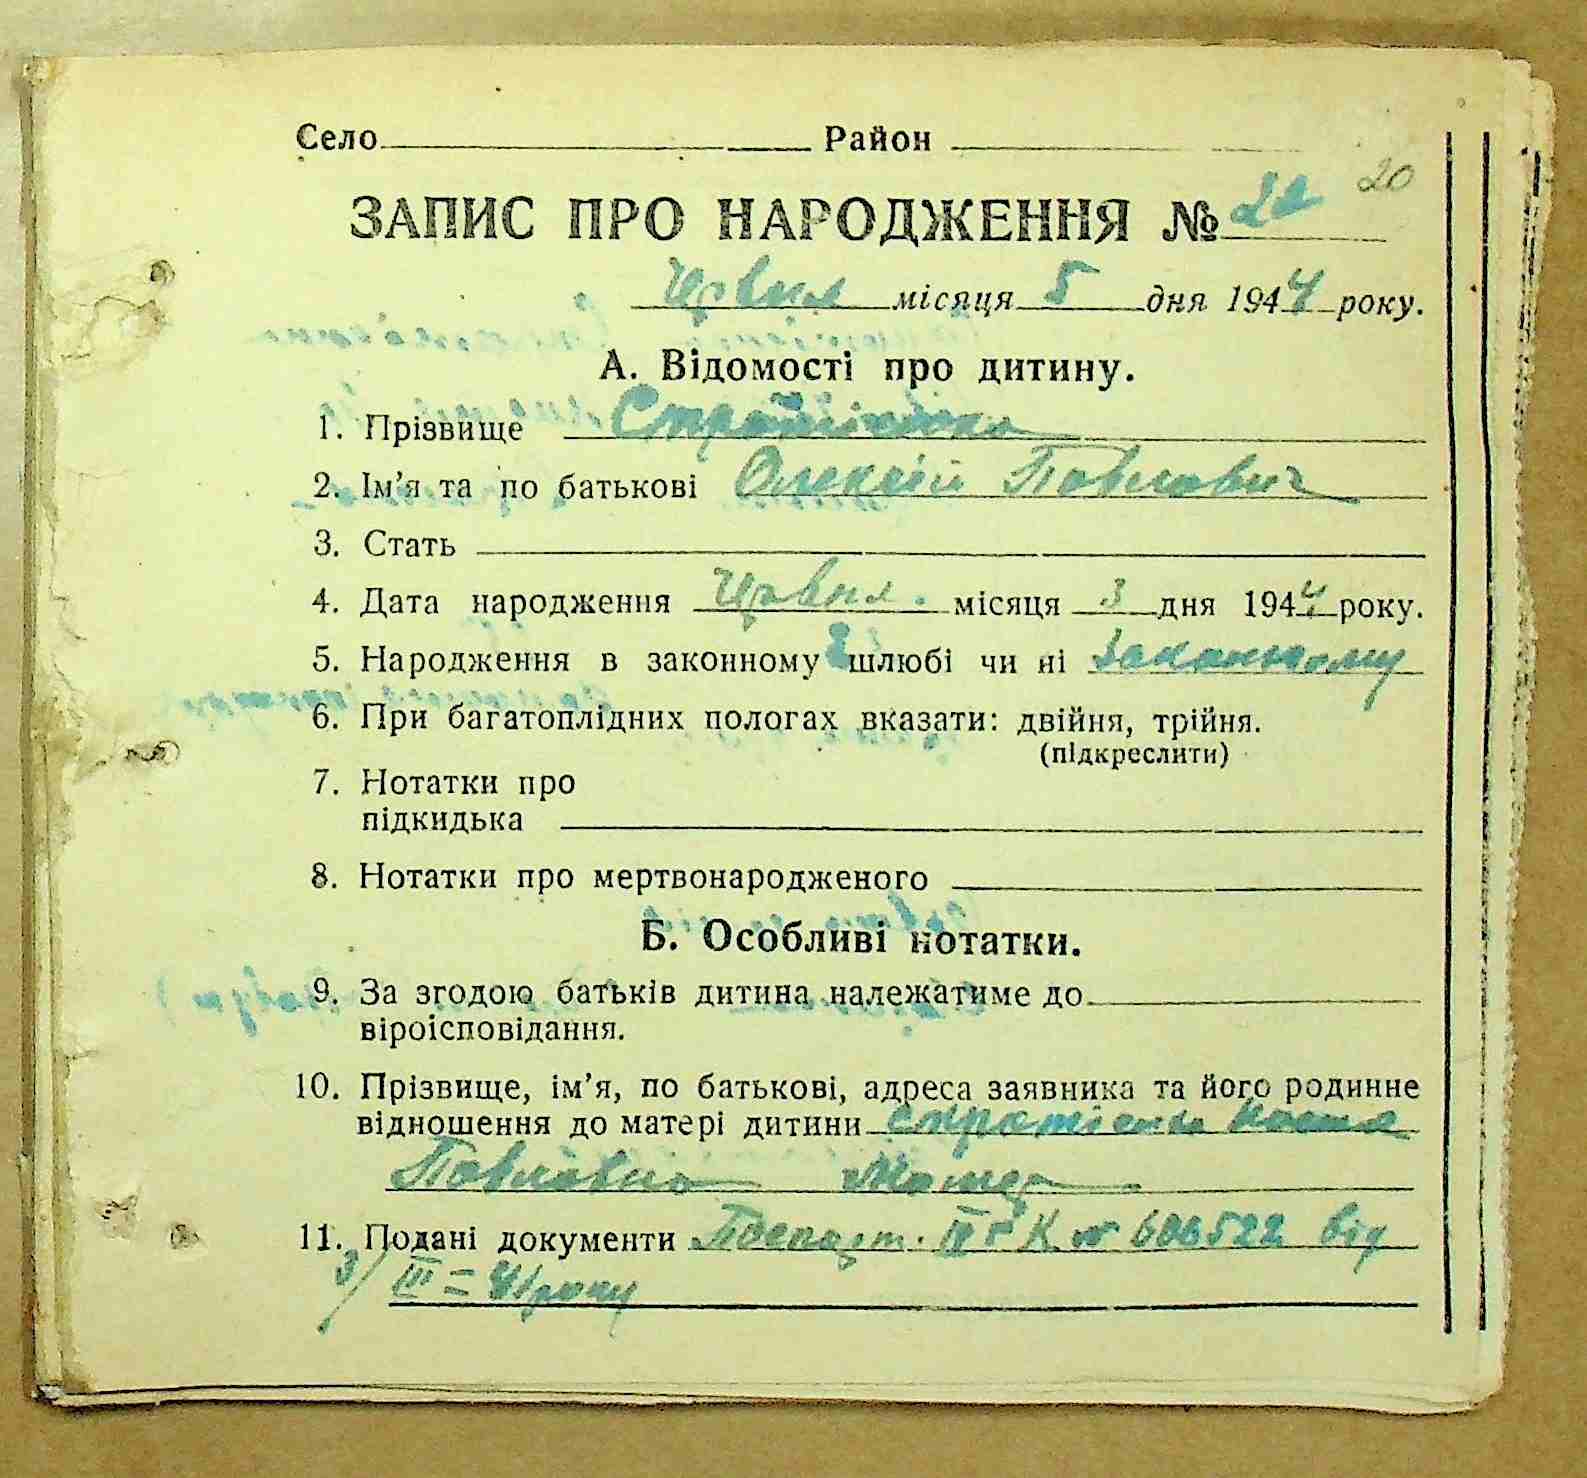 Село Район
20
ЗАПИС ПРО НАРОДЖЕННЯ № 20
Червня місяця 5 дня 1944 року.
А. Відомості про дитину.
1. Прізвище
2. Ім'я та по батькові Олексій Павлович
3. Стать
4. Дата народження Червня місяця 3 дня 1944 року.
5. Народження в законному шлюбі чи ні Законному
6. При багатоплідних пологах вказати: двійня, трійня.
(підкреслити)
7. Нотатки про
підкидька
8. Нотатки про мертвонародженого
Б. Особливі нотатки.
9. За згодою батьків дитина належатиме до
віроісповідання.
10. Прізвище, ім'я, по батькові, адреса заявника та його родинне
відношення до матері дитини
Павлівна
11. Подані документи Поспорт. IV г К № 606522 від
3/III=41 року